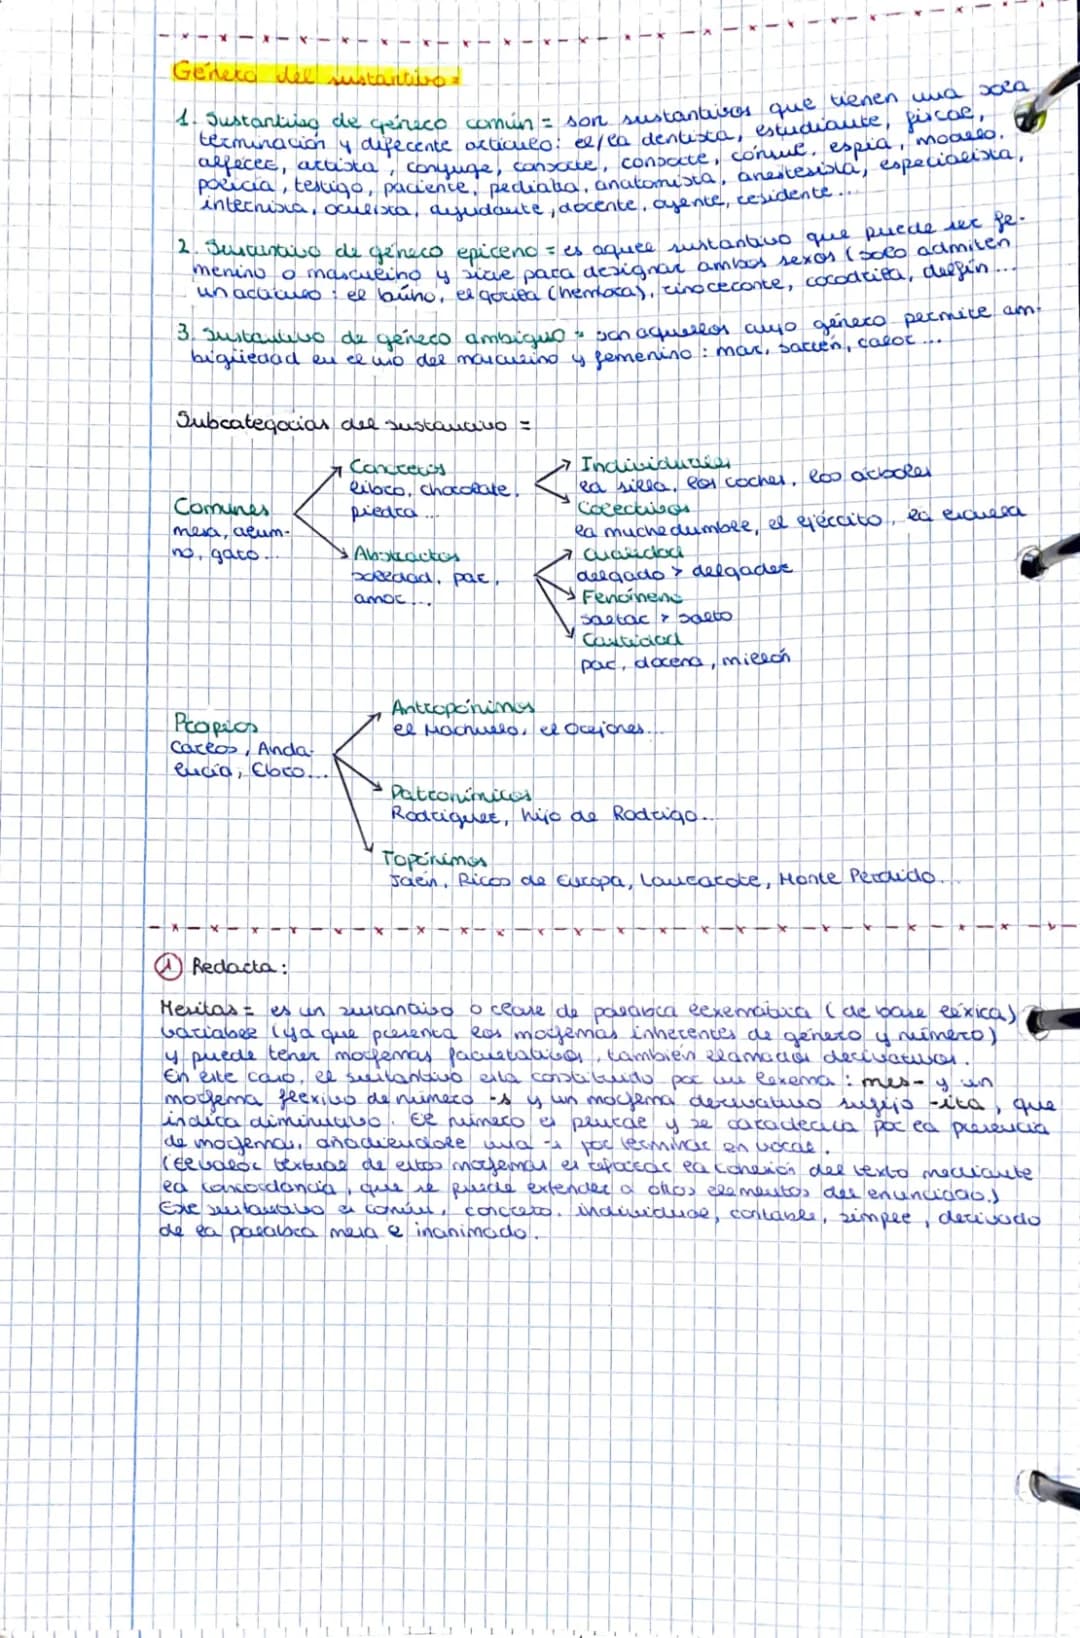 Género del sustantivo =
1. Sustantivo de género común = son sustantivos que tienen una sola
terminación y diferente artículo: el/la dentista, estudiante, fiscal,
alférez, artista, conyuge, consorte, consorte, cónsul, espía, modelo,
policía, testigo, paciente, pediatra, anatomista, anestesista, especialista,
internista, oculista, ayudante, docente, agente, residente...
2. Sustantivo de género epiceno = es aquel sustantivo que puede ser fe-
menino o masculino y sirve para designar ambos sexos (solo admiten
un artículo: el búho, el gorila (hembra), rinoceronte, cocodrilo, delfín...
3. Sustantivo de género ambiguo = son aquellos cuyo género permite am-
bigüedad en el uso del masculino y femenino: mar, sartén, calor...
Subcategorías del sustantivo =
Comunes
mesa, alum-
no, gato...
Concretos
libro, chocolate,
piedra...
Abstractos
soledad, paz,
amor...
Individuales
la silla, los coches, los árboles
Colectivos
la muchedumbre, el ejército, la escuela
Cualidad
delgado > delgadez
Fenómeno
saltar > salto
Cantidad
par, docena, millón
Propios
Carlos, Anda-
lucía, Ebro...
Antropónimos
el Mochuelo, el Ocejones...
Patronímicos
Rodríguez, hijo de Rodrigo...
Topónimos
Jaén, Picos de Europa, Lanzarote, Monte Perdido...
1 Redacta:
Mesitas = es un sustantivo o clase de palabra lexemática (de base léxica)
variable (ya que presenta los morfemas inherentes de género y número)
y puede tener morfemas facultativos, también llamados derivativos.
En este caso, el sustantivo está constituido por un lexema: mes- y un
morfema flexivo de número -s y un morfema derivativo sufijo -ita, que
indica diminutivo. El número es plural y se caracteriza por la presencia
de morfemas, añadiendole una -s por terminar en vocal.
(El valor textual de estos morfemas es reforzar la cohesión del texto mediante
la concordancia, que se puede extender a otros elementos del enunciado.)
Este sustantivo es común, concreto, individual, contable, simple, derivado
de la palabra mesa e inanimado.